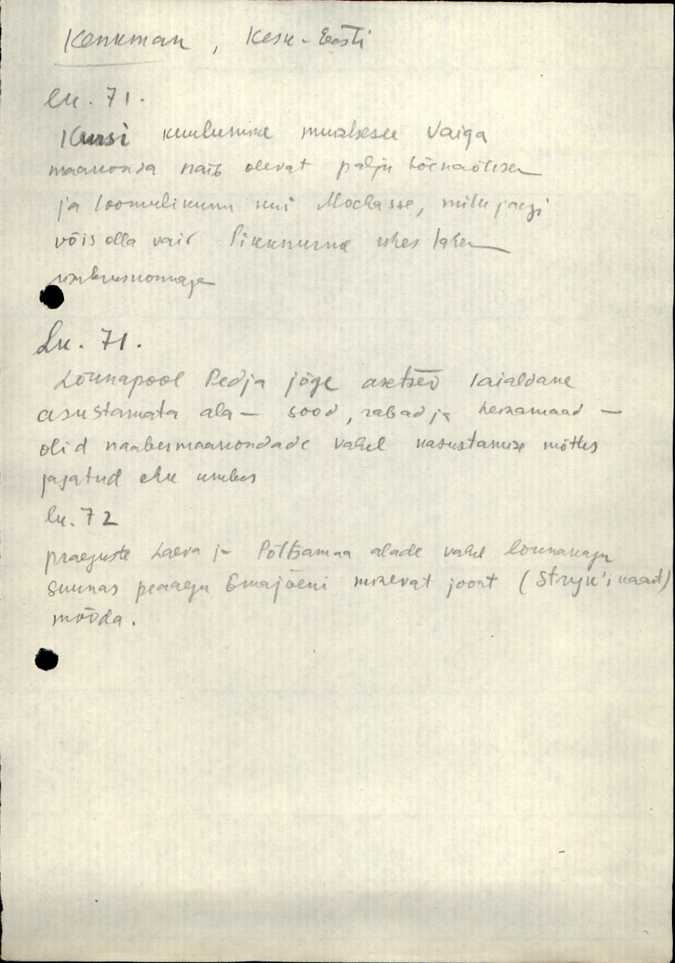 Kenkman, Kesk-Eesti
lk. 71.
Kursi kuulumine muakesse Vaiga
maakonda näib olevat palju tõenäolisem
ja loomulikum kui Mochasse, mille järgi
võis olla vaid Pikknurme ühes lähem
ümbruskonnaga
Lk. 71.
Lõunapool Pedja jõge asetsev laialdane
asustamata ala — sood, rabad ja heinamaad —
olid naabermaakondade vahel kasustamise mõttes
jagatud ehk umbes
lk. 72
praeguste Laeva ja Põltsamaa alade vahel lõunakagu
suunas peaaegu Emajõeni minevat joont (Stryk'i kaart)
mööda.